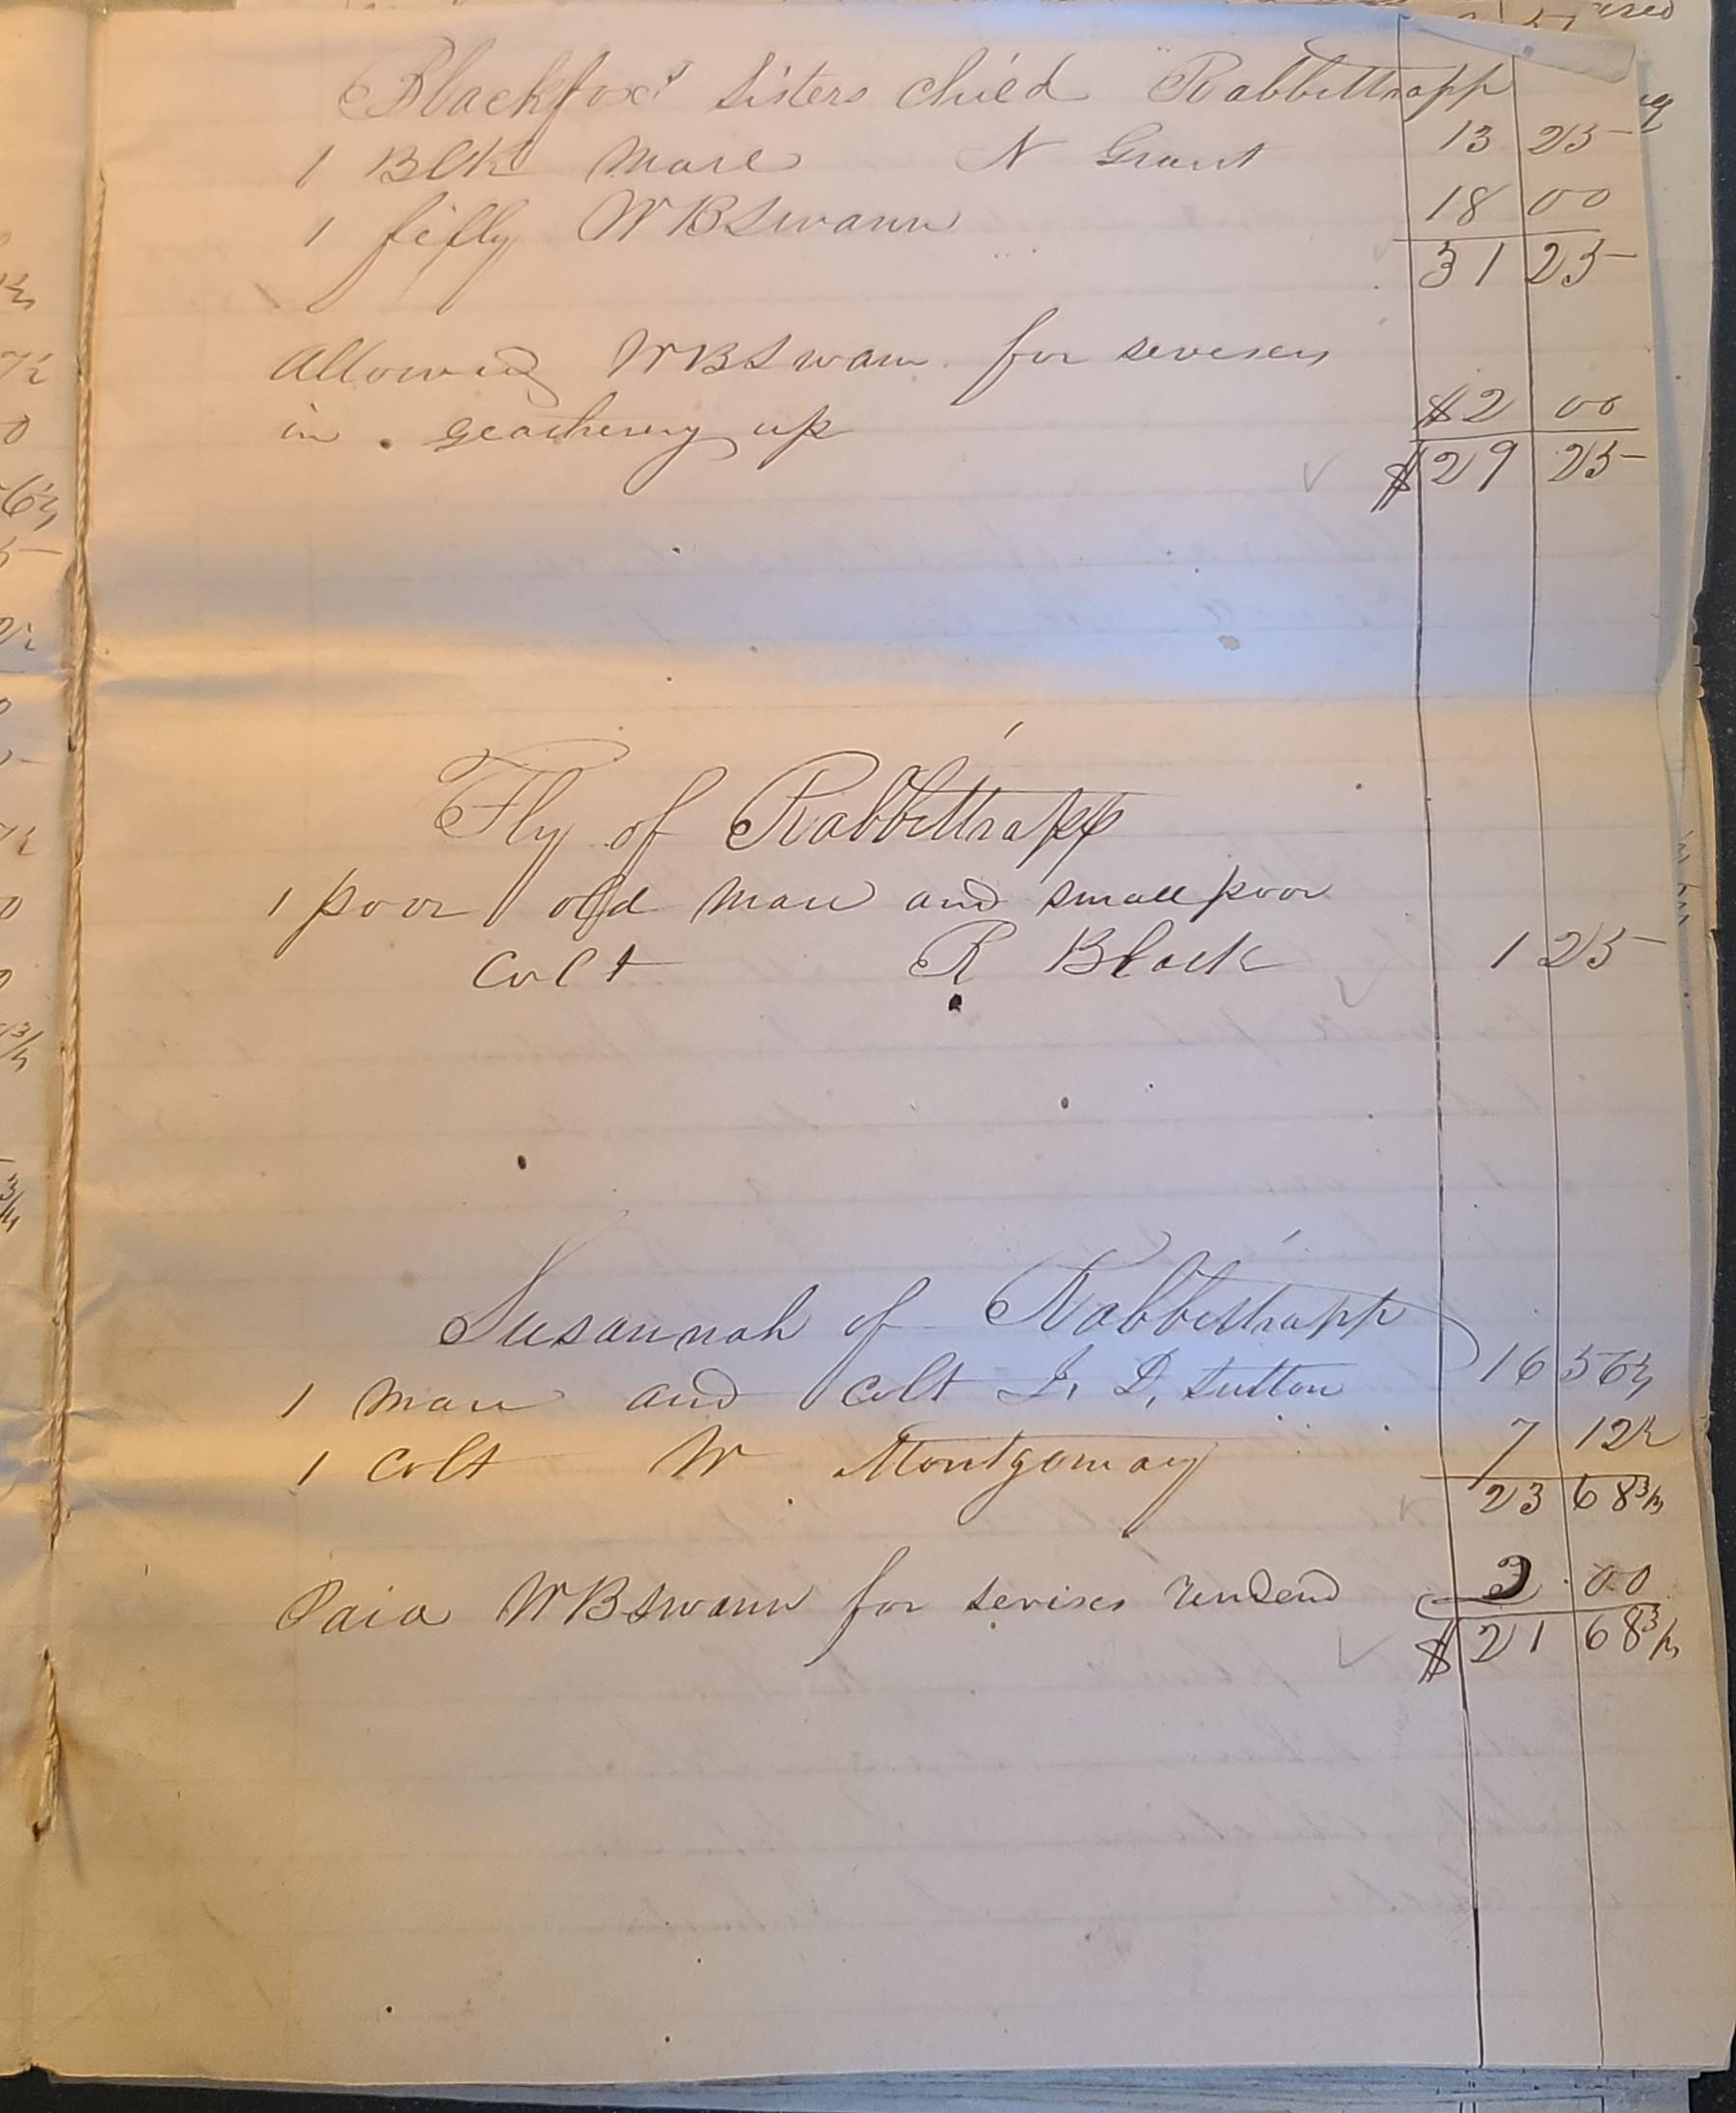 Blackfox's Sisters child Rabbittrapp
1 Blk Mare N Grant 13 25
1 filly W B Swann 18 00
31 25
Allowed W B Swan for serveses
in geathering up $2 00
$29 25
Fly of Rabbittrapp
1 poor old mare and small poor
Colt R Black 1 25
Susannah of Rabbittrapp
1 mare and colt J. D. Sutton 16 56¼
1 Colt W Montgomary 7 12½
23 68¾
Paid W B Swann for servises rendend 2 00
$21 68¾